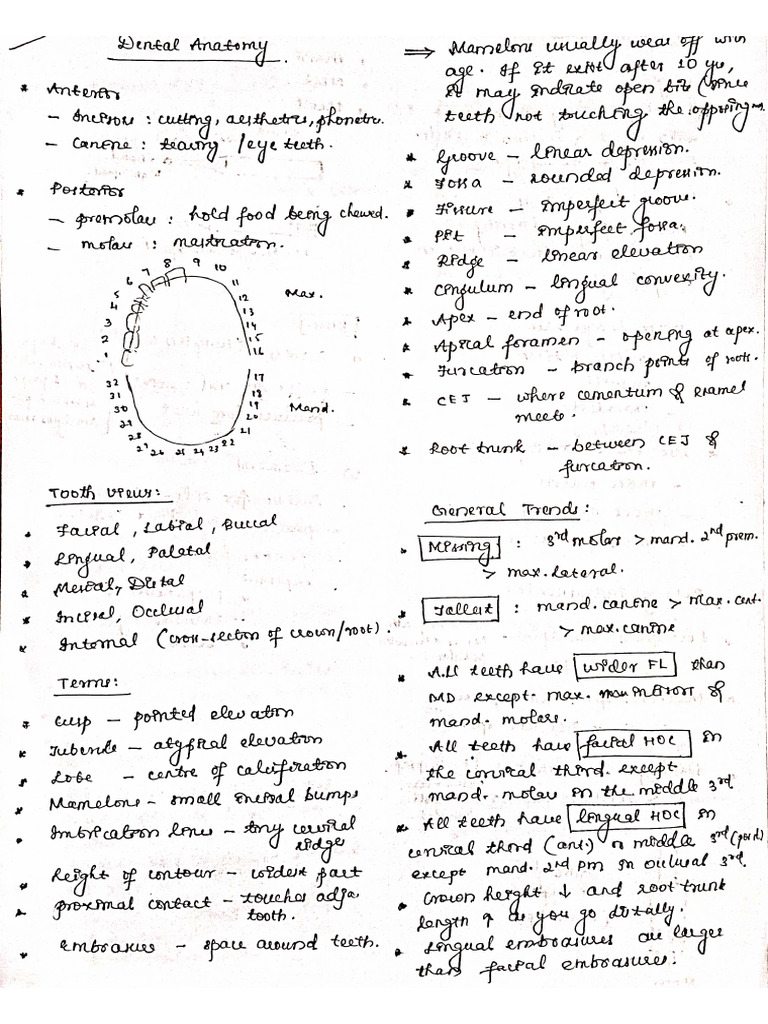 Dental Anatomy
* Anterior
- Incisors : cutting, aesthetics, phonetic.
- Canine : tearing / eye teeth.
* Posterior
- premolar : hold food being chewed.
- molar : mastication.
1 2 3 4 5 6 7 8 9 10 11 12 13 14 15 16
Max.
32 31 30 29 28 27 26 25 24 23 22 21 20 19 18 17
Mand.
Tooth views:
* Facial, Labial, Buccal
* Lingual, Palatal
* Mesial, Distal
* Incisal, Occlusal
* Internal (cross-section of crown/root).
Terms:
* Cusp - pointed elevation
* Tubercle - atypical elevation
* Lobe - centre of calcification
* Mamelons - small incisal bumps
* Imbrication lines - tiny cervical
ridge
* Height of contour - widest part
* proximal contact - touches adja
tooth.
* embrasures - space around teeth.
⇒ Mamelons usually wear off with
age. If it exist after 10 yr,
it may indicate open bit (since
teeth not touching the opposing
* Groove - linear depression.
* Fossa - rounded depression.
* Fissure - imperfect groove.
* Pit - imperfect fossa.
* Ridge - linear elevation
* Cingulum - lingual convexity.
* Apex - end of root.
* Apical foramen - opening at apex.
* Furcation - branch points of roots.
* CEJ - where cementum & enamel
meets.
* Root trunk - between CEJ &
furcation.
General Trends:
* Missing : 3rd molars > mand. 2nd prem.
> max. lateral.
* Tallest : mand. canine > max. cent.
> max. canine
* All teeth have wider FL than
MD except. max. &
mand. molars.
* All teeth have facial HOC in
the cervical third. except
mand. molar in the middle 3rd
* All teeth have lingual HOC in
cervical third (ant.) or middle 3rd (post)
except mand. 2nd pm in occlusal 3rd.
* Crown height ↓ and root trunk
length ↑ as you go distally.
* Lingual embrasures are larger
than facial embrasures.